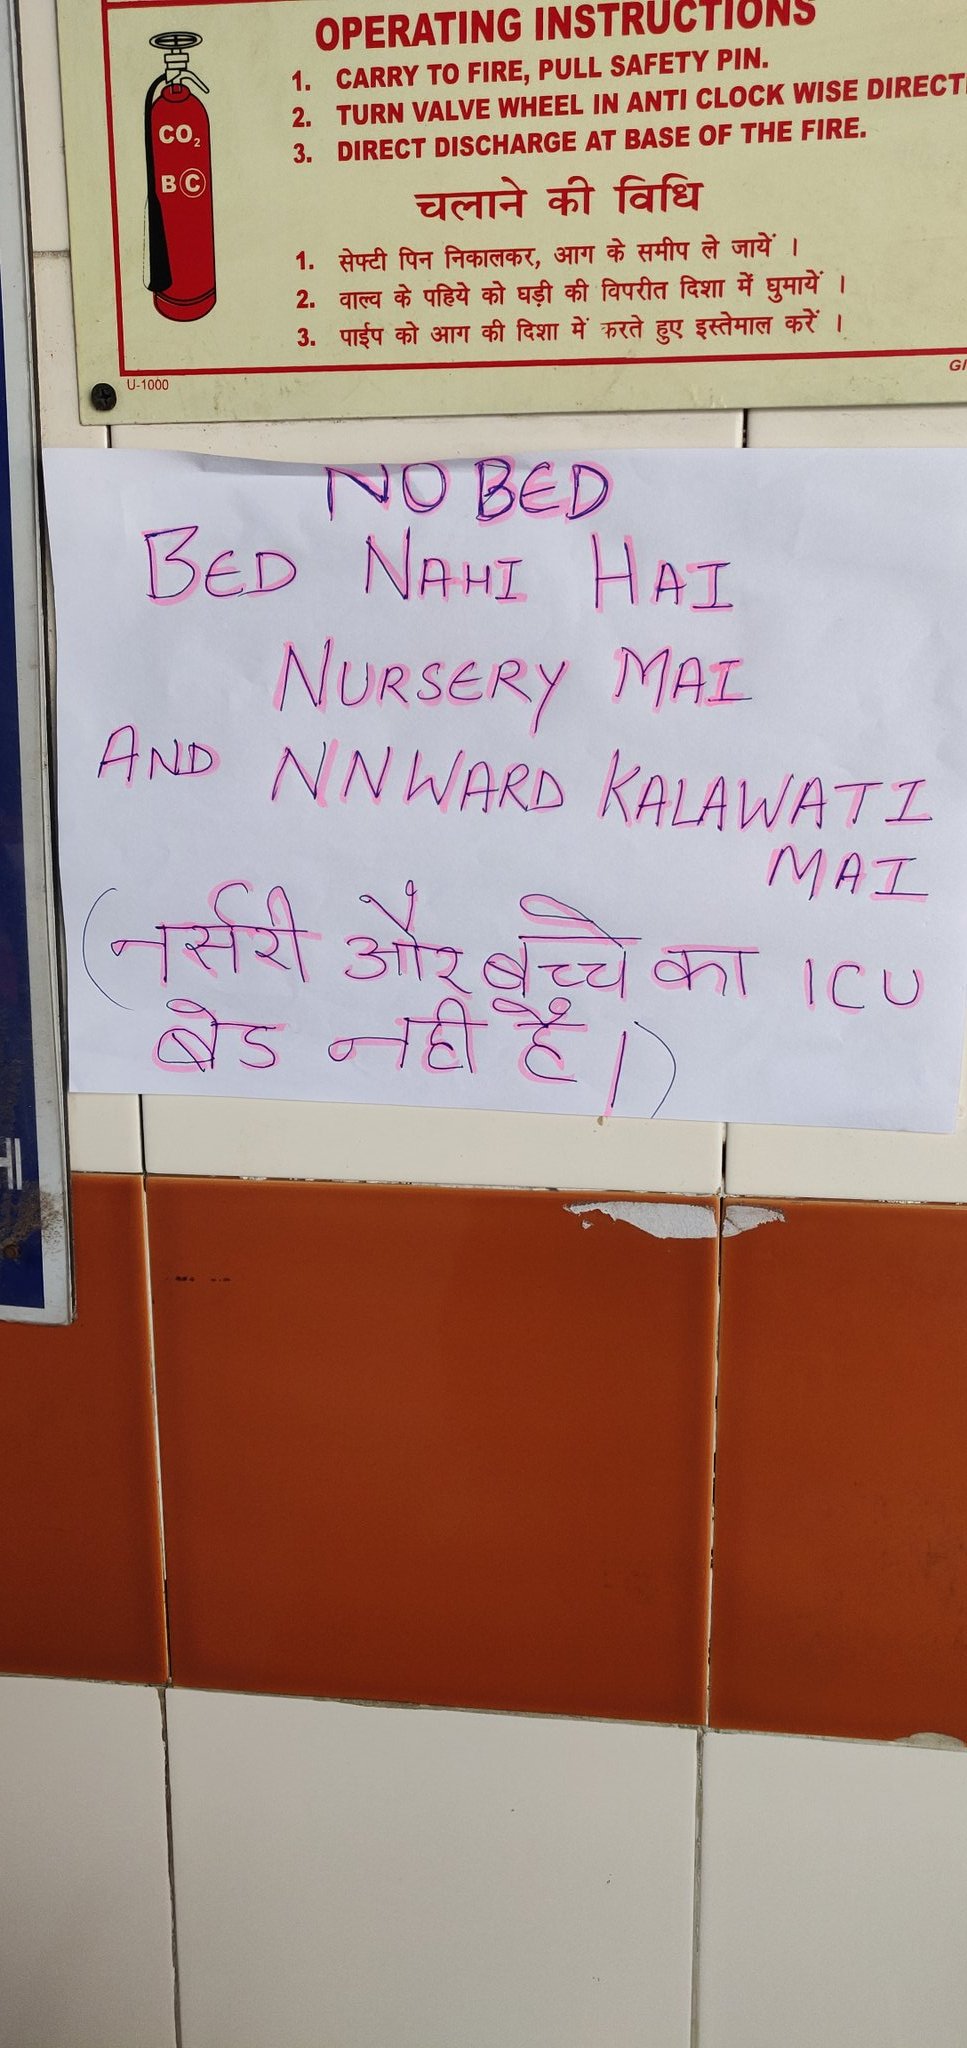 OPERATING INSTRUCTIONS
1. CARRY TO FIRE, PULL SAFETY PIN.
2. TURN VALVE WHEEL IN ANTI CLOCK WISE DIRECTI
3. DIRECT DISCHARGE AT BASE OF THE FIRE.
CO₂
B C
चलाने की विधि
1. सेफ्टी पिन निकालकर, आग के समीप ले जायें ।
2. वाल्व के पहिये को घड़ी की विपरीत दिशा में घुमायें ।
3. पाईप को आग की दिशा में करते हुए इस्तेमाल करें ।
U-1000
NO BED
BED NAHI HAI
NURSERY MAI
AND NNWARD KALAWATI
MAI
(नर्सरी और बच्चे का ICU
बेड नही हैं।)